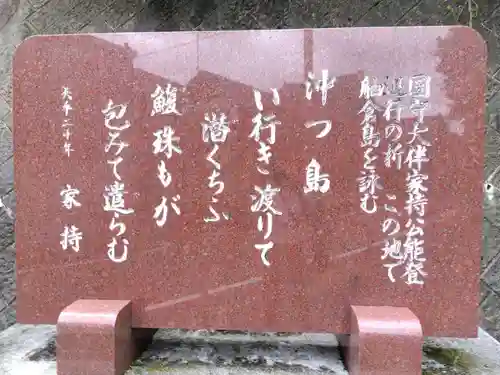 国守大伴家持公能登
巡行の折 この地て
舳倉島を詠む
沖つ島
い行き渡りて
潜くちふ
鰒珠もが
包みて遣らむ
天平二十年 家持